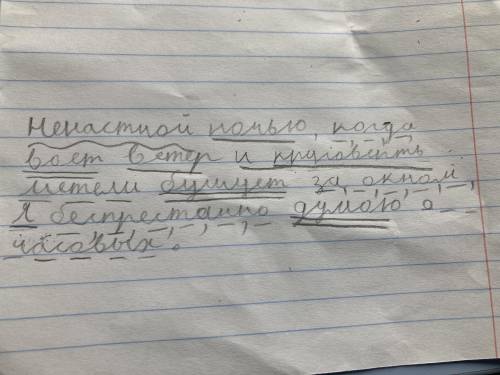 Ненастной ночью, когда
воет ветер и круговерть
метели бушует за окном,
я беспрестанно думаю о
часовых.